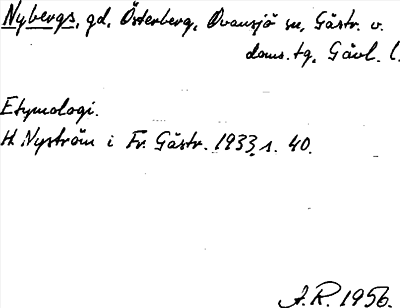 Nybergs, gd, Österberg, Ovansjö sn, Gästr. v.
doms. tg, Gävl. l.
Etymologi.
H. Nyström i Fr. Gästr. 1933, s. 40.
J.R. 1956.